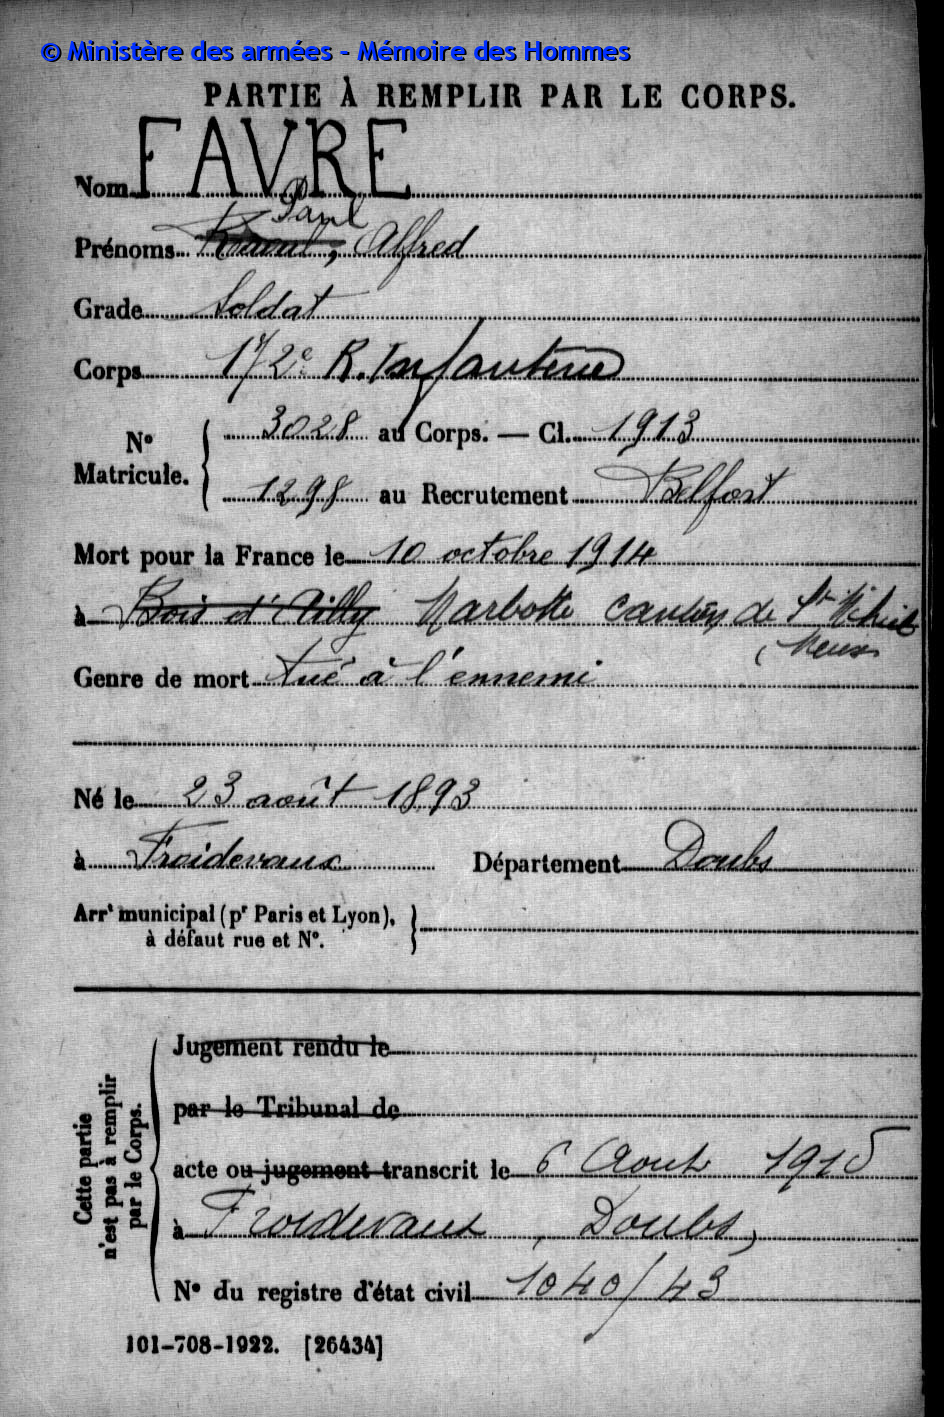 © Ministère des armées - Mémoire des Hommes
PARTIE À REMPLIR PAR LE CORPS.
Nom FAVRE
Paul
Prénoms Raoul, Alfred
Grade Soldat
Corps 172e R. Infanterie
N° Matricule. 3028 au Corps. — Cl. 1913
1298 au Recrutement Belfort
Mort pour la France le 10 octobre 1914
à Bois d'Ailly Marbotte canton de St Mihiel
(Meuse
Genre de mort tué à l'ennemi
Né le 23 août 1893
à Froidevaux Département Doubs
Arrt municipal (pr Paris et Lyon),
à défaut rue et N°.
Cette partie
n'est pas à remplir
par le Corps.
Jugement rendu le
par le Tribunal de
acte ou jugement transcrit le 6 Aout 1915
à Froidevaux, Doubs,
N° du registre d'état civil 1040/43
101-708-1922. [26434]